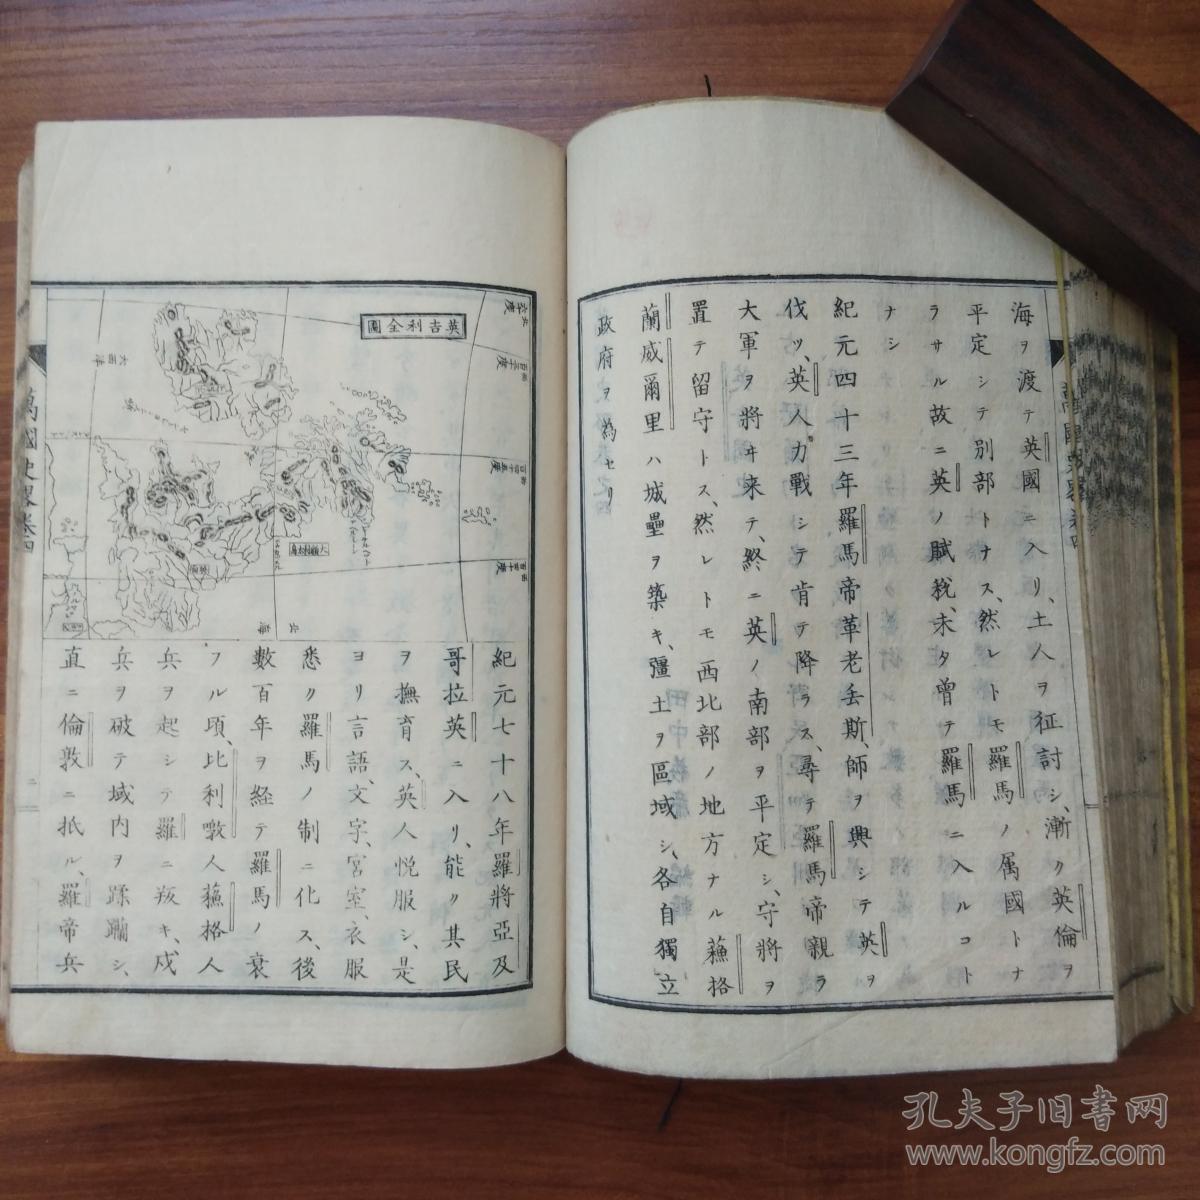 海ヲ渡テ英國ニ入リ、土人ヲ征討シ、漸ク英倫ヲ
平定シテ別部トナス、然レトモ羅馬ノ属國トナ
ラサル故ニ英ノ賦税、未タ曽テ羅馬ニ入ルコト
ナシ
紀元四十三年羅馬帝革老丢斯、師ヲ興シテ英ヲ
伐ツ、英人力戰シテ肯テ降ラス、尋テ羅馬帝親ラ
大軍ヲ將ヰ来テ、終ニ英ノ南部ヲ平定シ、守將ヲ
置テ留守トス、然レトモ西北部ノ地方ナル蘓格
蘭威爾里ハ城壘ヲ築キ、彊土ヲ區域シ、各自獨立
政府ヲ為セリ
英吉利全圖
大西洋
北海
萬國史畧卷四
二
紀元七十八年羅將亞及
哥拉英ニ入リ、能ク其民
ヲ撫育ス、英人悦服シ、是
ヨリ言語、文字、宮室、衣服
悉ク羅馬ノ制ニ化ス、後
數百年ヲ経テ羅馬ノ衰
フル項、比利敦人蘓格人
兵ヲ起シテ羅ニ叛キ、戍
兵ヲ破テ域内ヲ蹂躪シ、
直ニ倫敦ニ抵ル、羅帝兵
孔夫子旧书网
www.kongfz.com